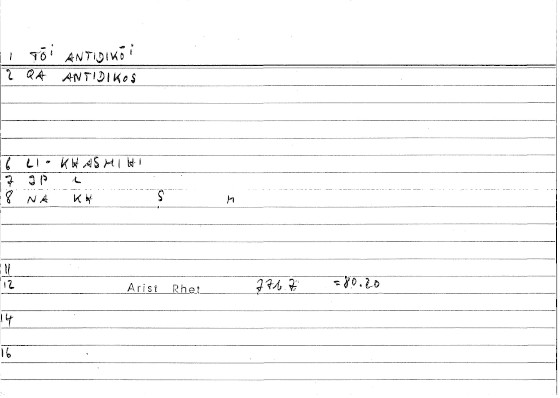 1 TŌI ANTIDIKŌI
2 QA ANTIDIKOS
6 LI-KHAṢMIHI
7 JP L
8 NA KH Ṣ M
11
12 Arist Rhet 776 7 =80.20
14
16